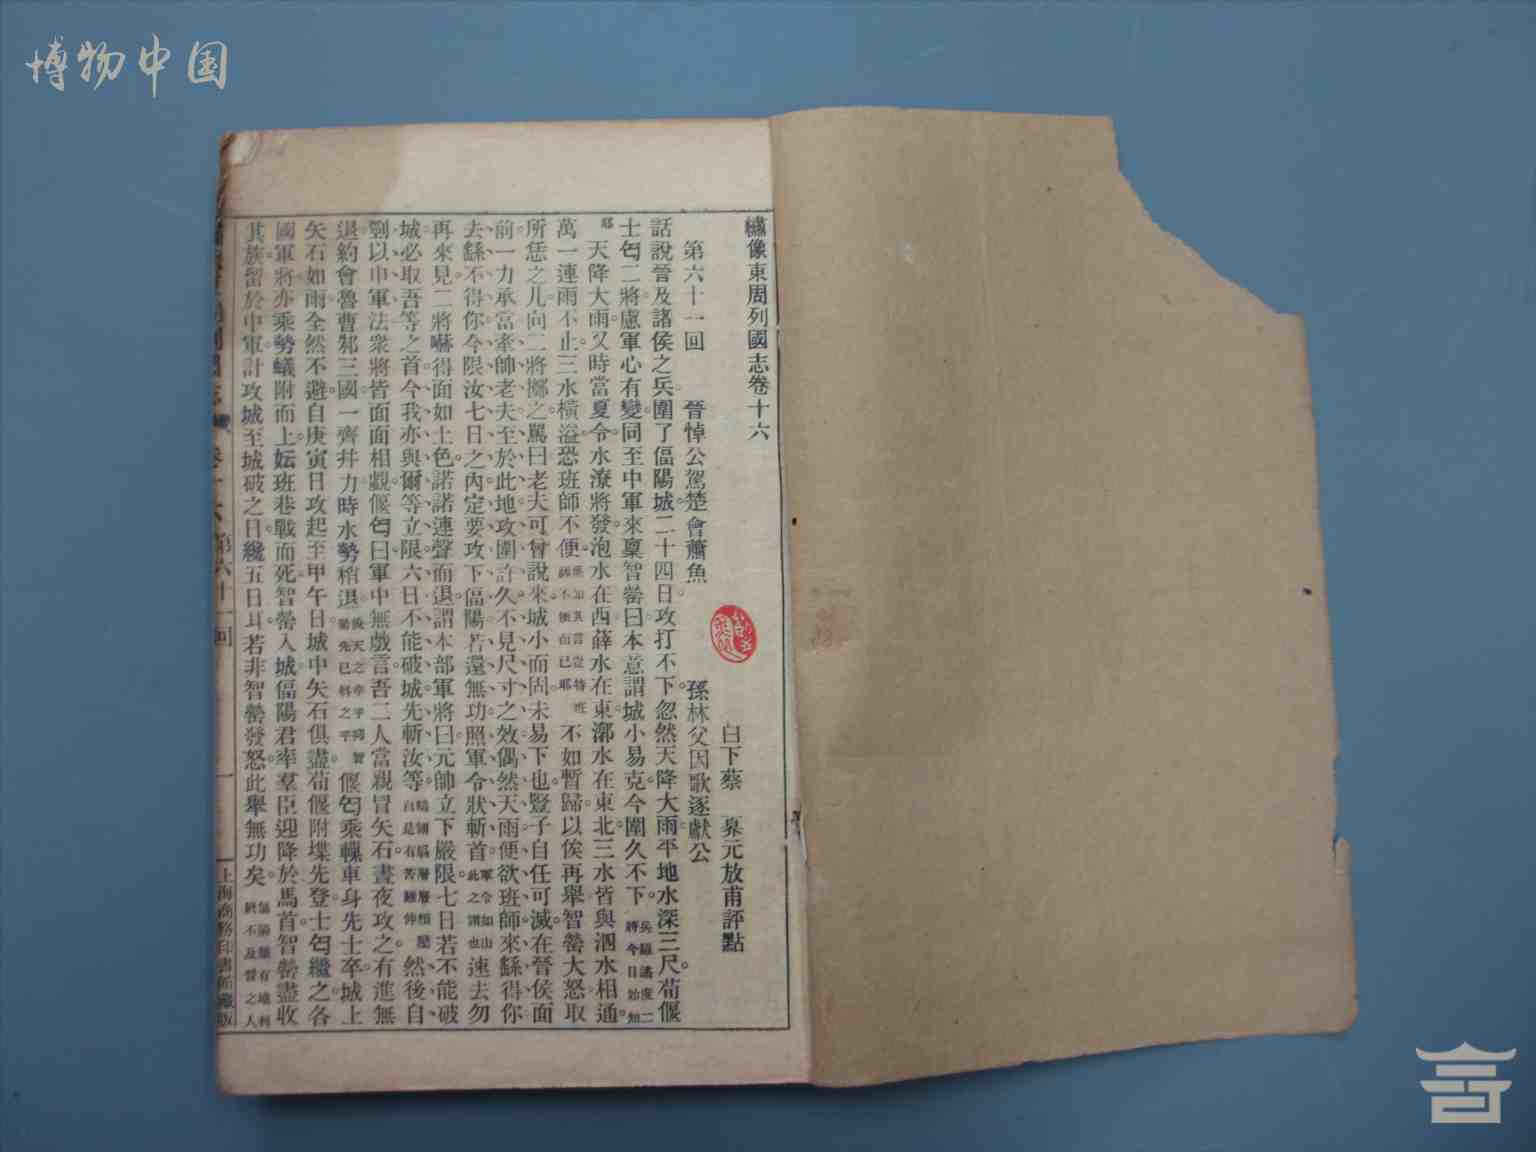 博物中国
繡像東周列國志卷十六
白下蔡　奡元放甫評點
第六十一回　晉悼公駕楚會蕭魚　孫林父因歌逐獻公
話說晉及諸侯之兵圍了偪陽城二十四日攻打不下忽然天降大雨平地水深三尺荀偃
士匄二將慮軍心有變同至中軍來稟智罃曰本意謂城小易克今圍久不下
天降大雨又時當夏令水潦將發泡水在西薛水在東漷水在東北三水皆與泗水相通
萬一連雨不止三水橫溢恐班師不便 不如暫歸以俟再舉智罃大怒取
所慿之几向二將擲之罵曰老夫可曾說來城小而固未易下也豎子自任可滅在晉侯面
前一力承當牽帥老夫至於此地攻圍許久不見尺寸之效偶然天雨便欲班師來繇得你
去繇不得你今限汝七日之內定要攻下偪陽若還無功照軍令狀斬首軍令如山此之謂也速去勿
再來見二將嚇得面如土色諾諾連聲而退謂本部軍將曰元帥立下嚴限七日若不能破
城必取吾等之首今我亦與爾等立限六日不能破城先斬汝等 然後自
剄以申軍法衆將皆面面相觀偃匄曰軍中無戲言吾二人當親冒矢石晝夜攻之有進無
退約會魯曹邾三國一齊幷力時水勢稍退 偃匄乘轈車身先士卒城上
矢石如雨全然不避自庚寅日攻起至甲午日城中矢石俱盡荀偃附堞先登士匄繼之各
國軍將亦乘勢蟻附而上妘班巷戰而死智罃入城偪陽君率羣臣迎降於馬首智罃盡收
其族留於中軍計攻城至城破之日纔五日耳若非智罃發怒此舉無功矣
卷十六　第六十一回　一　上海商務印書館藏版